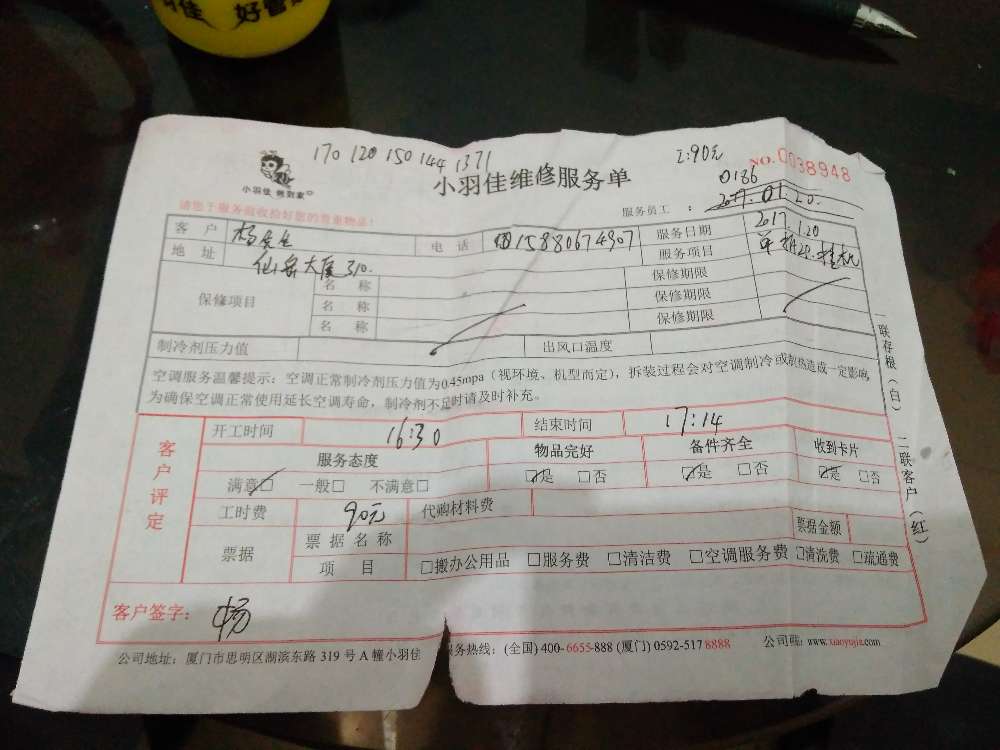 170 120 150 144 1371
工:90元
NO.0038948
小羽佳 做到家
小羽佳维修服务单
0186
服务员工: 2017.01.20.
请您于服务前收拾好您的贵重物品!
客户 杨先生 电话 15880674907 服务日期 2017.1.20
地址 仙岳大厦310. 服务项目
保修项目 名称 保修期限
名称 保修期限
名称 保修期限
制冷剂压力值 出风口温度
空调服务温馨提示:空调正常制冷剂压力值为0.45mpa(视环境、机型而定),拆装过程会对空调制冷或散热造成一定影响,
为确保空调正常使用延长空调寿命,制冷剂不足时请及时补充。
客户评定
开工时间 16:30 结束时间 17:14
服务态度 物品完好 备件齐全 收到卡片
满意☑ 一般□ 不满意□ ☑是 □否 ☑是 □否 ☑是 □否
工时费 90元 代购材料费
票据 票据名称 票据金额
项目 □搬办公用品 □服务费 □清洁费 □空调服务费 □清洗费 □疏通费
客户签字: 杨
公司地址:厦门市思明区湖滨东路319号A幢小羽佳 服务热线:(全国)400-6655-888 (厦门)0592-5178888 公司 www.xiaoyujia.com
一联存根(白) 二联客户(红)